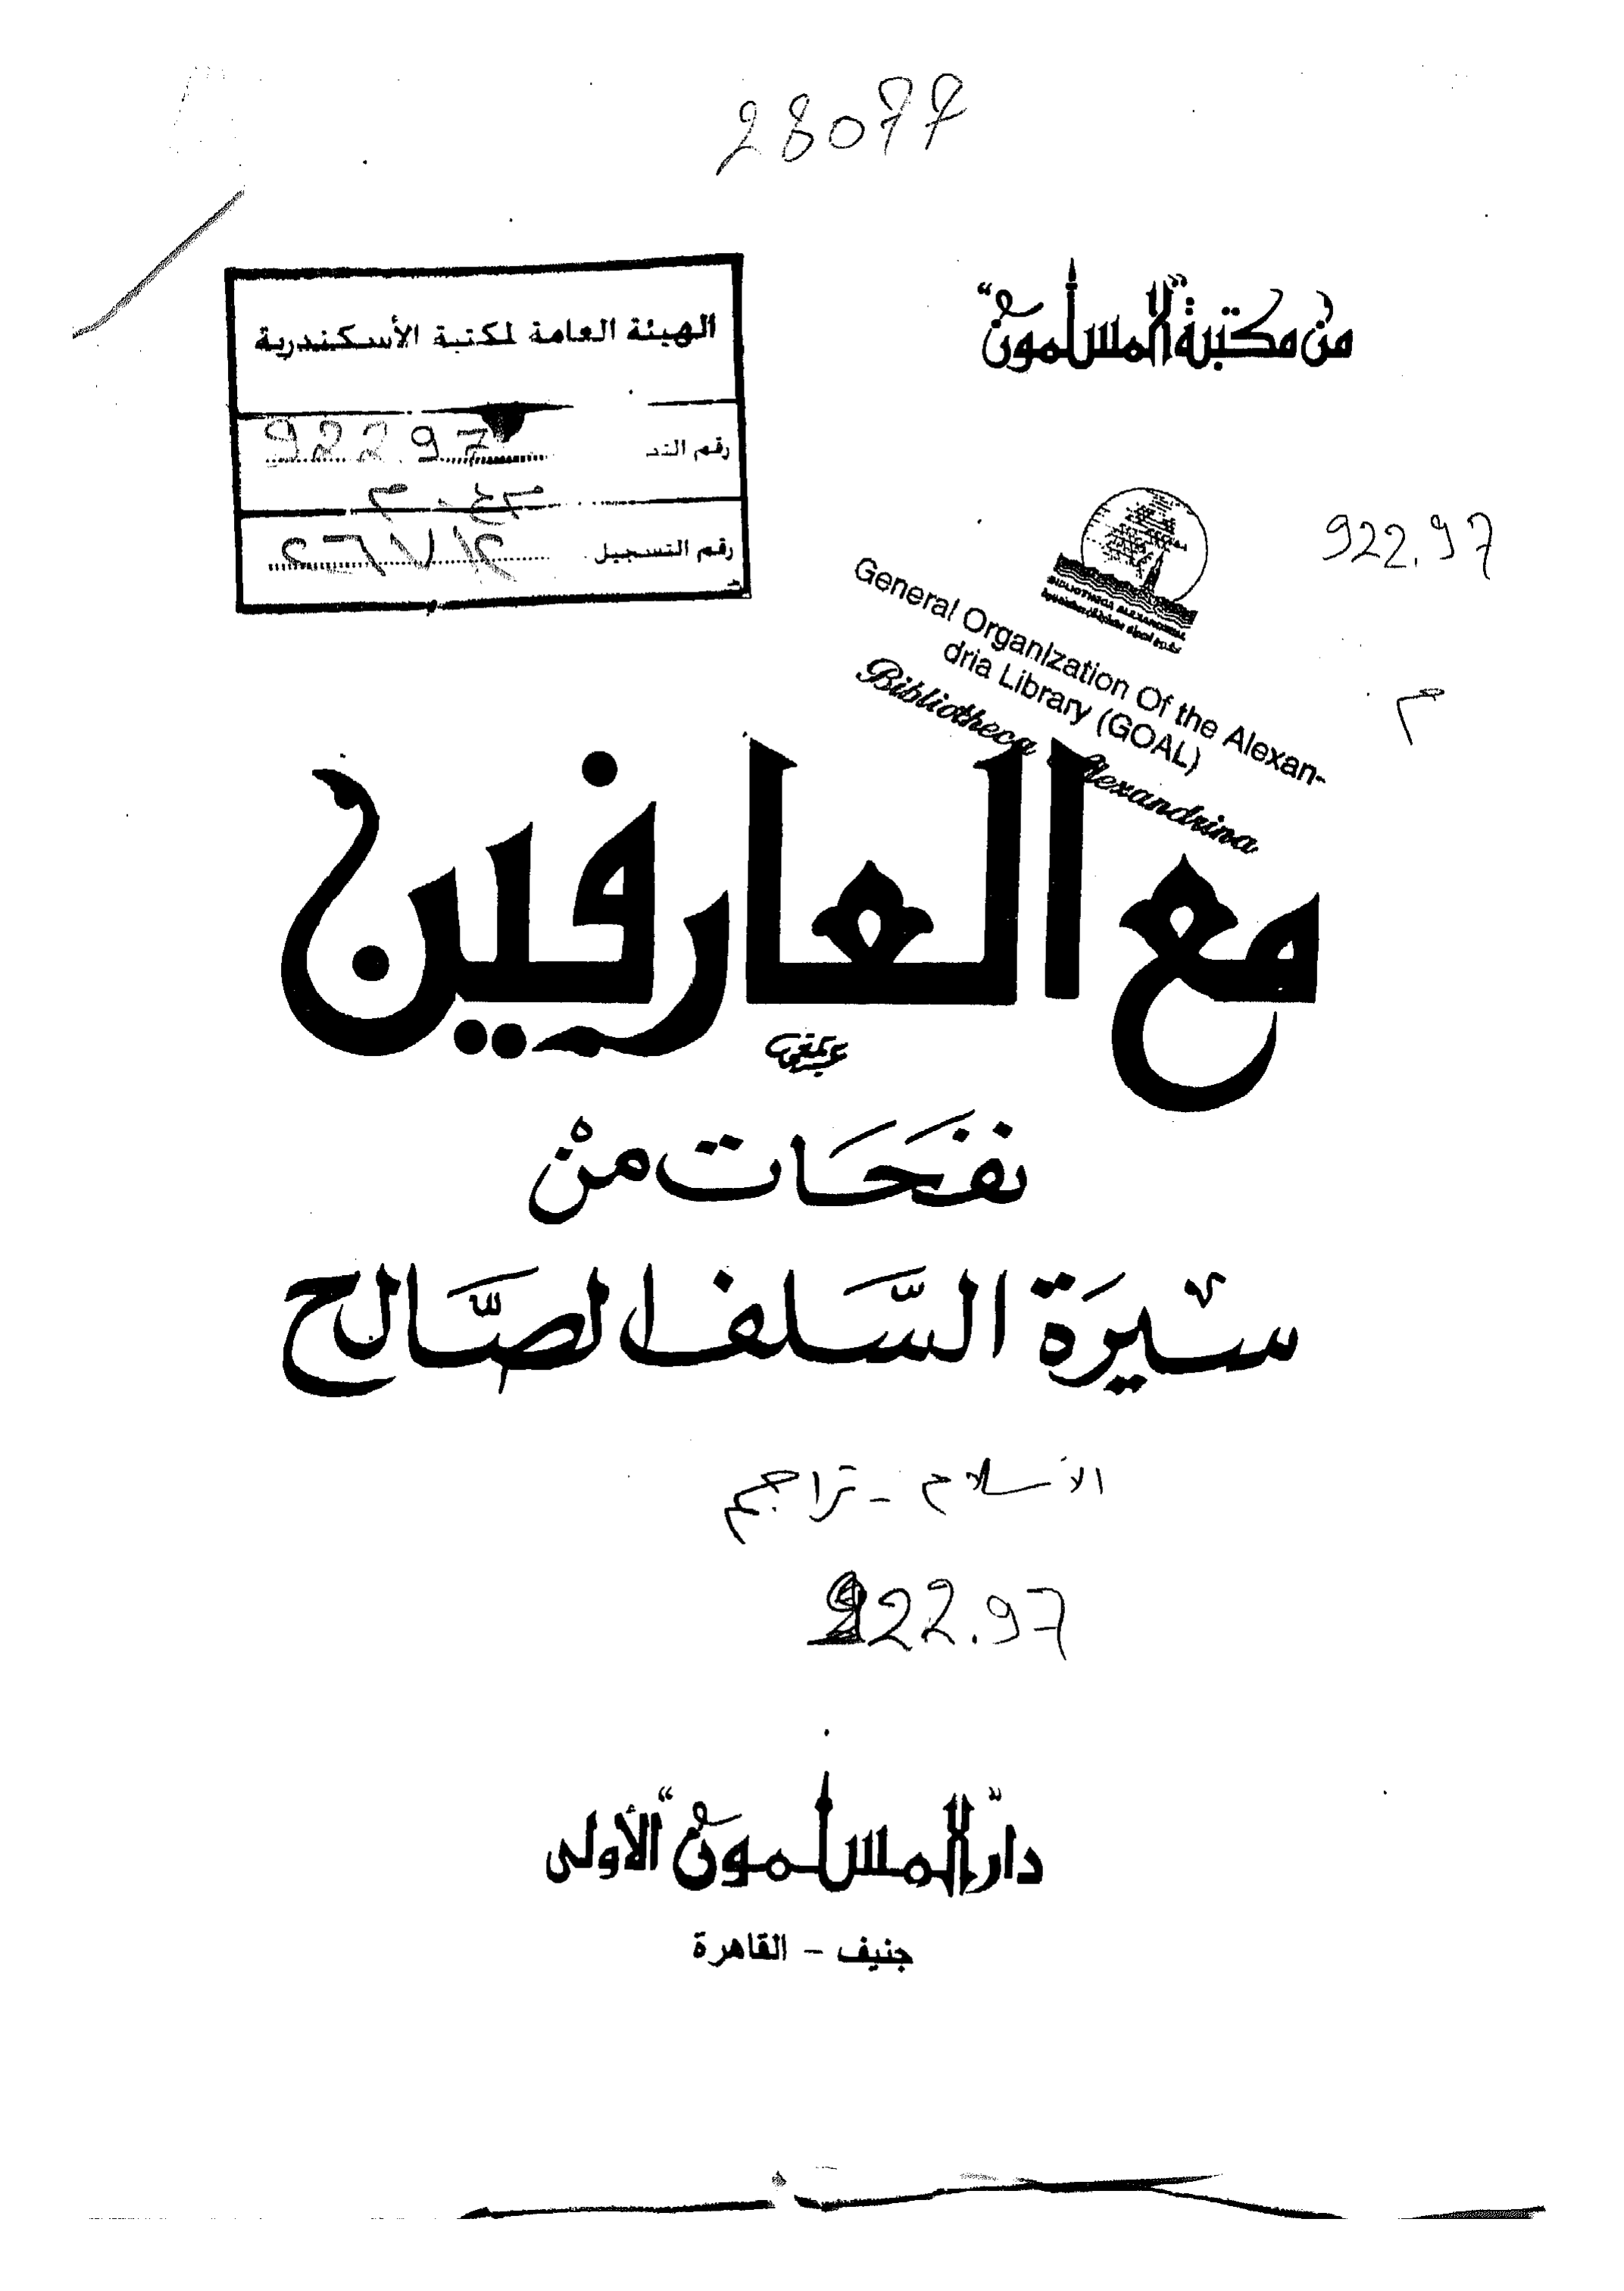 28077
من مكتبة "المسلمون"
الهيئة العامة لمكتبة الأسكندرية
رقم التد 922.97
رقم التسجيل
922.97
م
BIBLIOTHECA ALEXANDRINA
General Organization Of the Alexan-
dria Library (GOAL)
Bibliotheca Alexandrina
مع العارفين
نفَحَات منْ
سيْرَة السَّلف الصَّالح
الاسلام - تراجم
922.97
دار "المسلمون" الأولى
جنيف - القاهرة